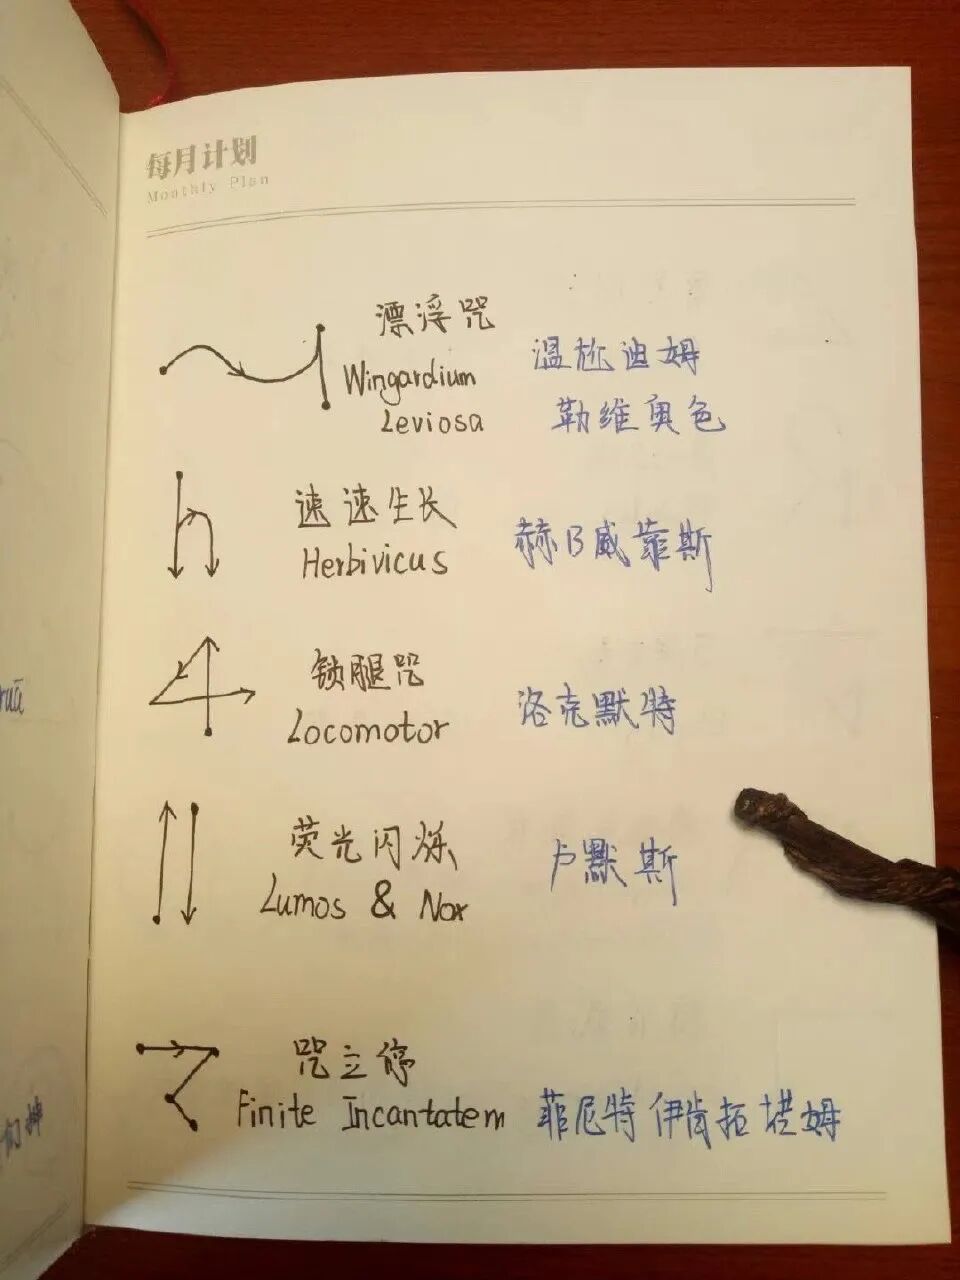 每月计划
Monthly Plan
漂浮咒
Wingardium
Leviosa
温尬迪姆
勒维奥色
速速生长
Herbivicus
赫B威靠斯
锁腿咒
Locomotor
洛克默特
荧光闪烁
Lumos & Nox
卢默斯
咒立停
Finite Incantatem
菲尼特 伊肯拓塔姆